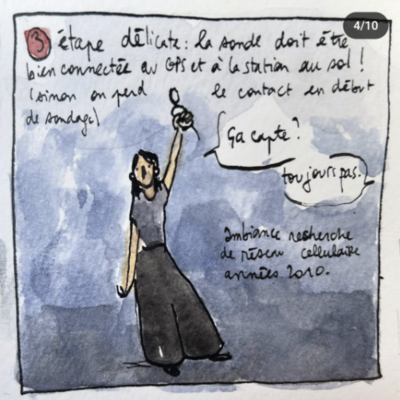 4/10
3 étape délicate : la sonde doit être
bien connectée au GPS et à la station au sol !
(sinon on perd le contact en début
de sondage)
Ça capte ?
toujours pas.
ambiance recherche
de réseau cellulaire
années 2010.